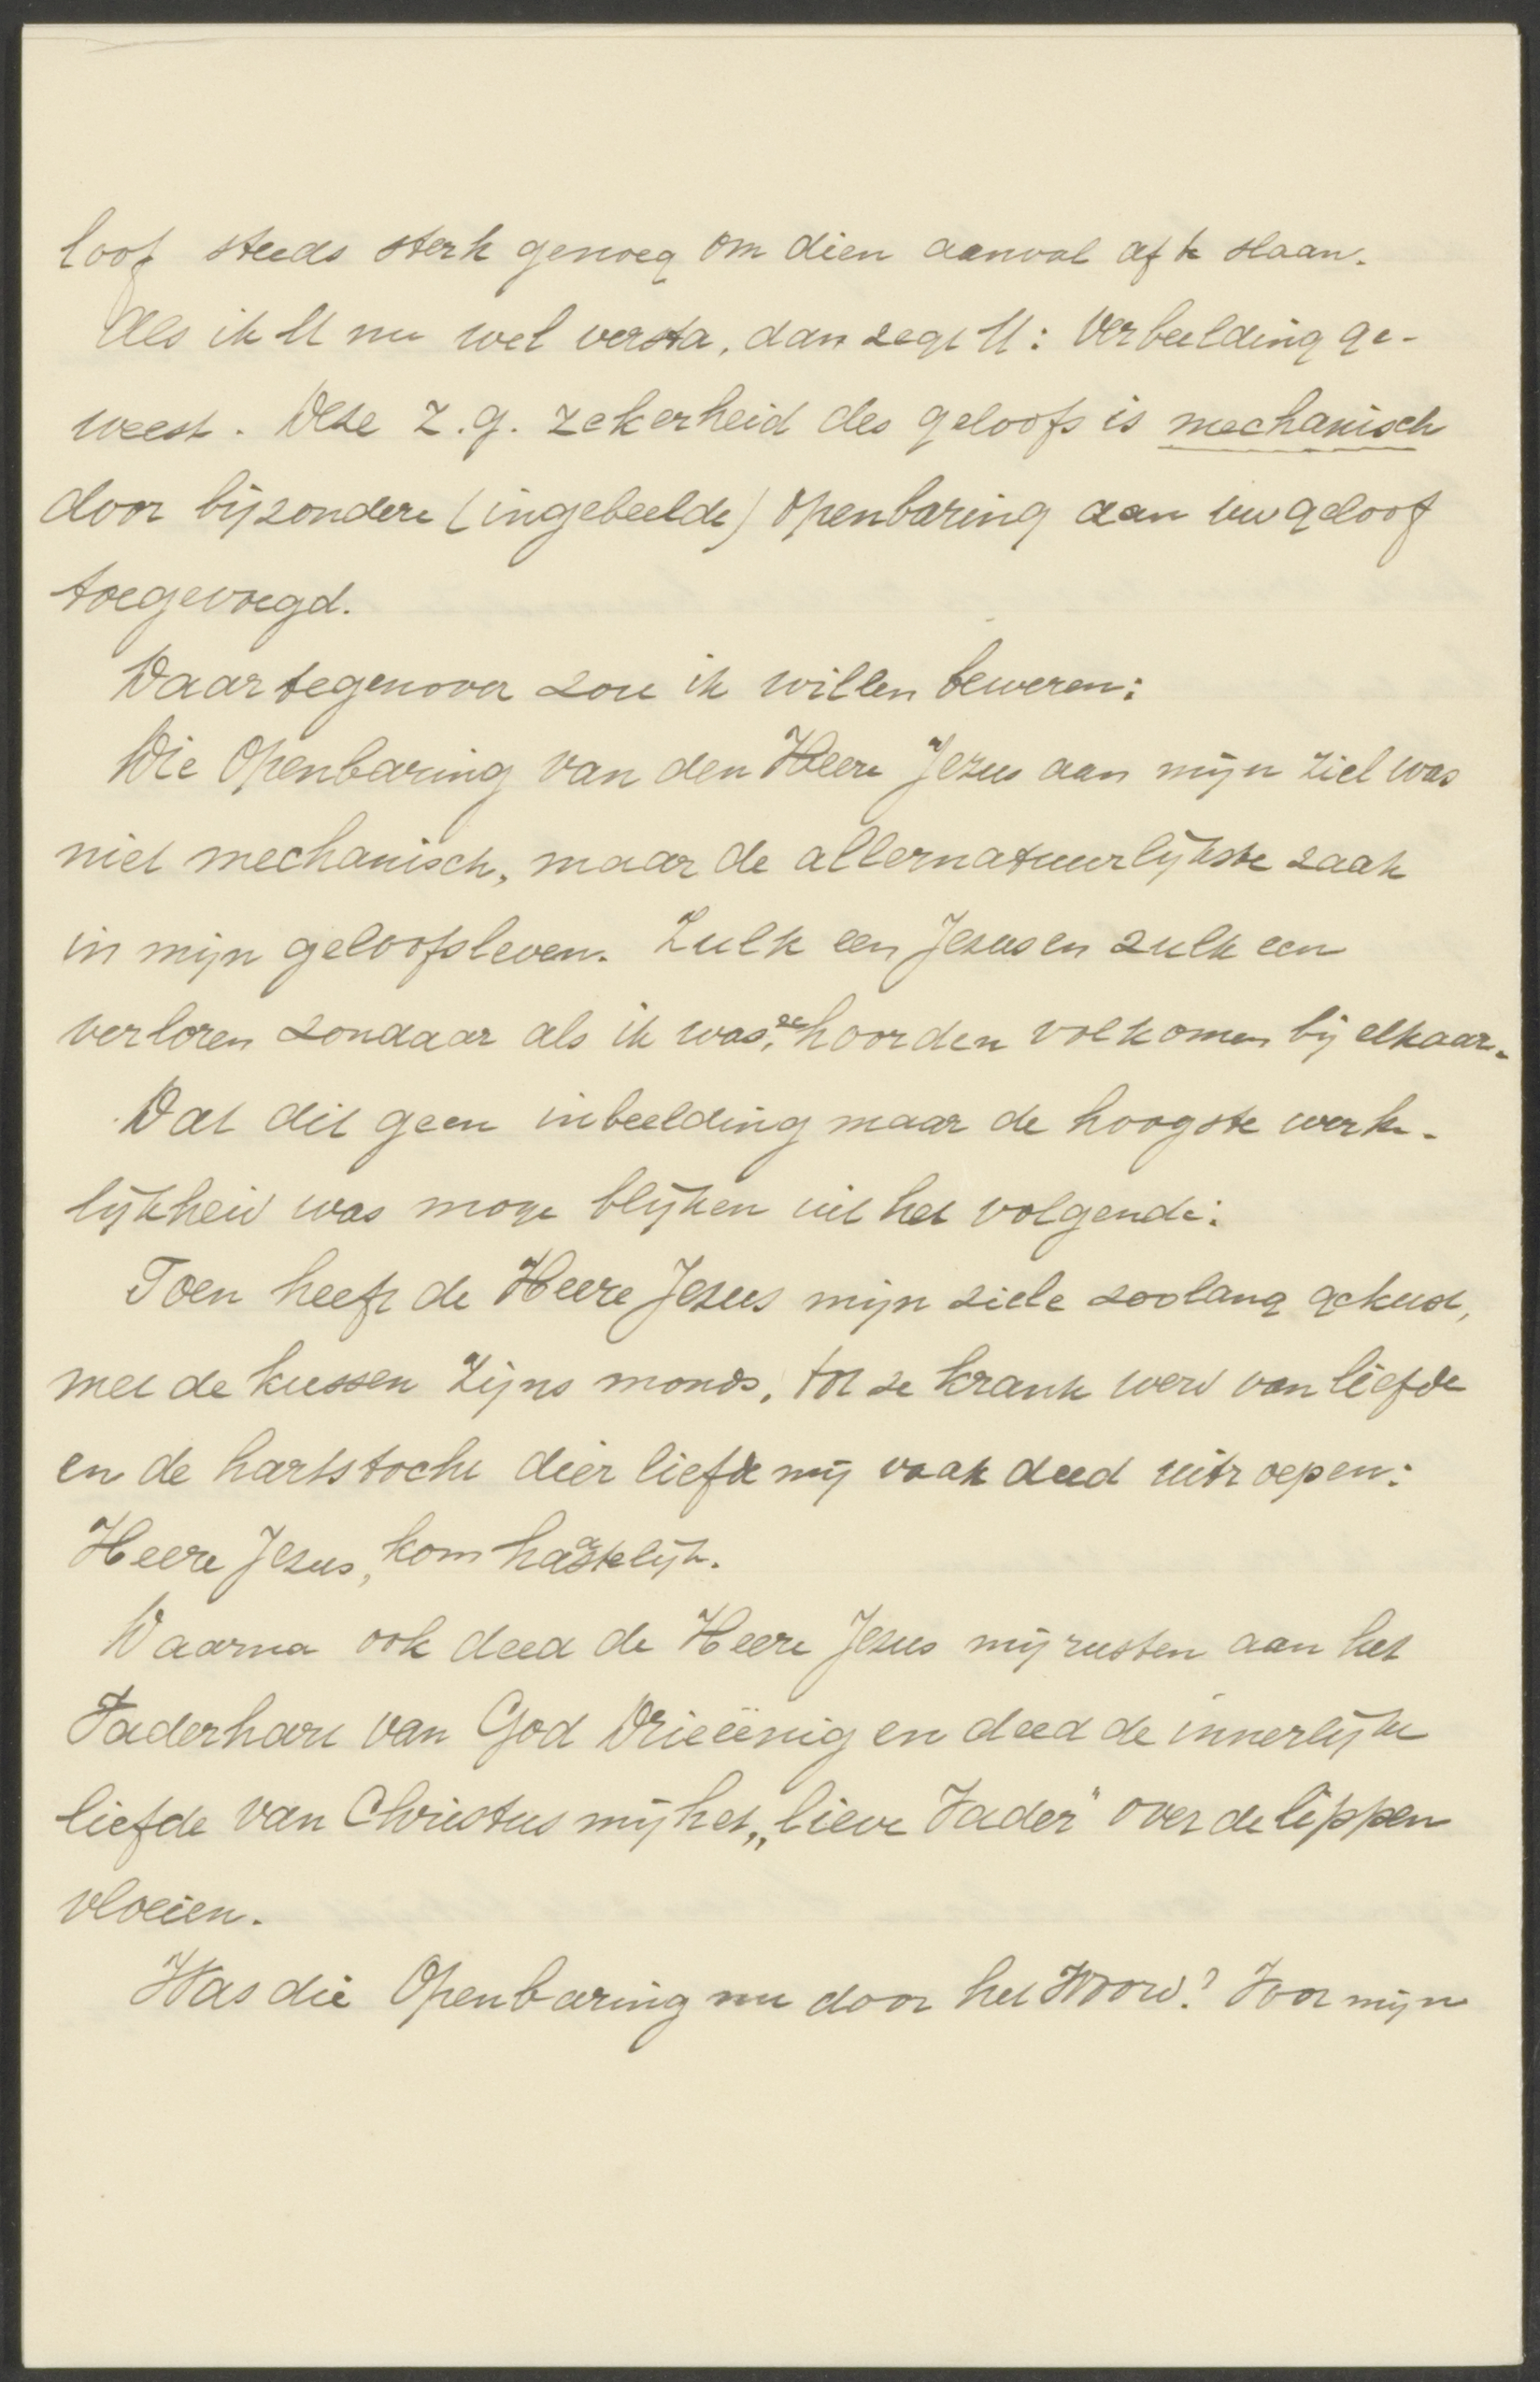 loof steeds sterk genoeg om dien aanval af te slaan.
Als ik U nu wel versta, dan zegt U: Verbeelding ge-
weest. Deze z.g. zekerheid des geloofs is mechanisch
door bijzondere (ingebeelde) openbaring aan uw geloof
toegevoegd.
Daartegenover zou ik willen beweren:
Die Openbaring van den Heere Jezus aan mijn ziel was
niet mechanisch, maar de allernatuurlijkste zaak
in mijn geloofsleven. Zulk een Jezus en zulk een
verloren zondaar als ik was, ge hoorden volkomen bij elkaar.
Dat dit geen inbeelding maar de hoogste werke-
lijkheid was moge blijken uit het volgende:
Toen heeft de Heere Jezus mijn ziele zoolang gekust,
met de kussen Zijns monds, tot ze krank werd van liefde
en de hartstocht dier liefde mij vaak deed uitroepen:
Heere Jezus, kom haastelijk.
Daarna ook deed de Heere Jezus mij rusten aan het
Vaderhart van God Drieëenig en deed de innerlijke
liefde van Christus mij het „lieve Vader" over de lippen
vloeien.
Was die Openbaring nu door het Woord? Voor mijn